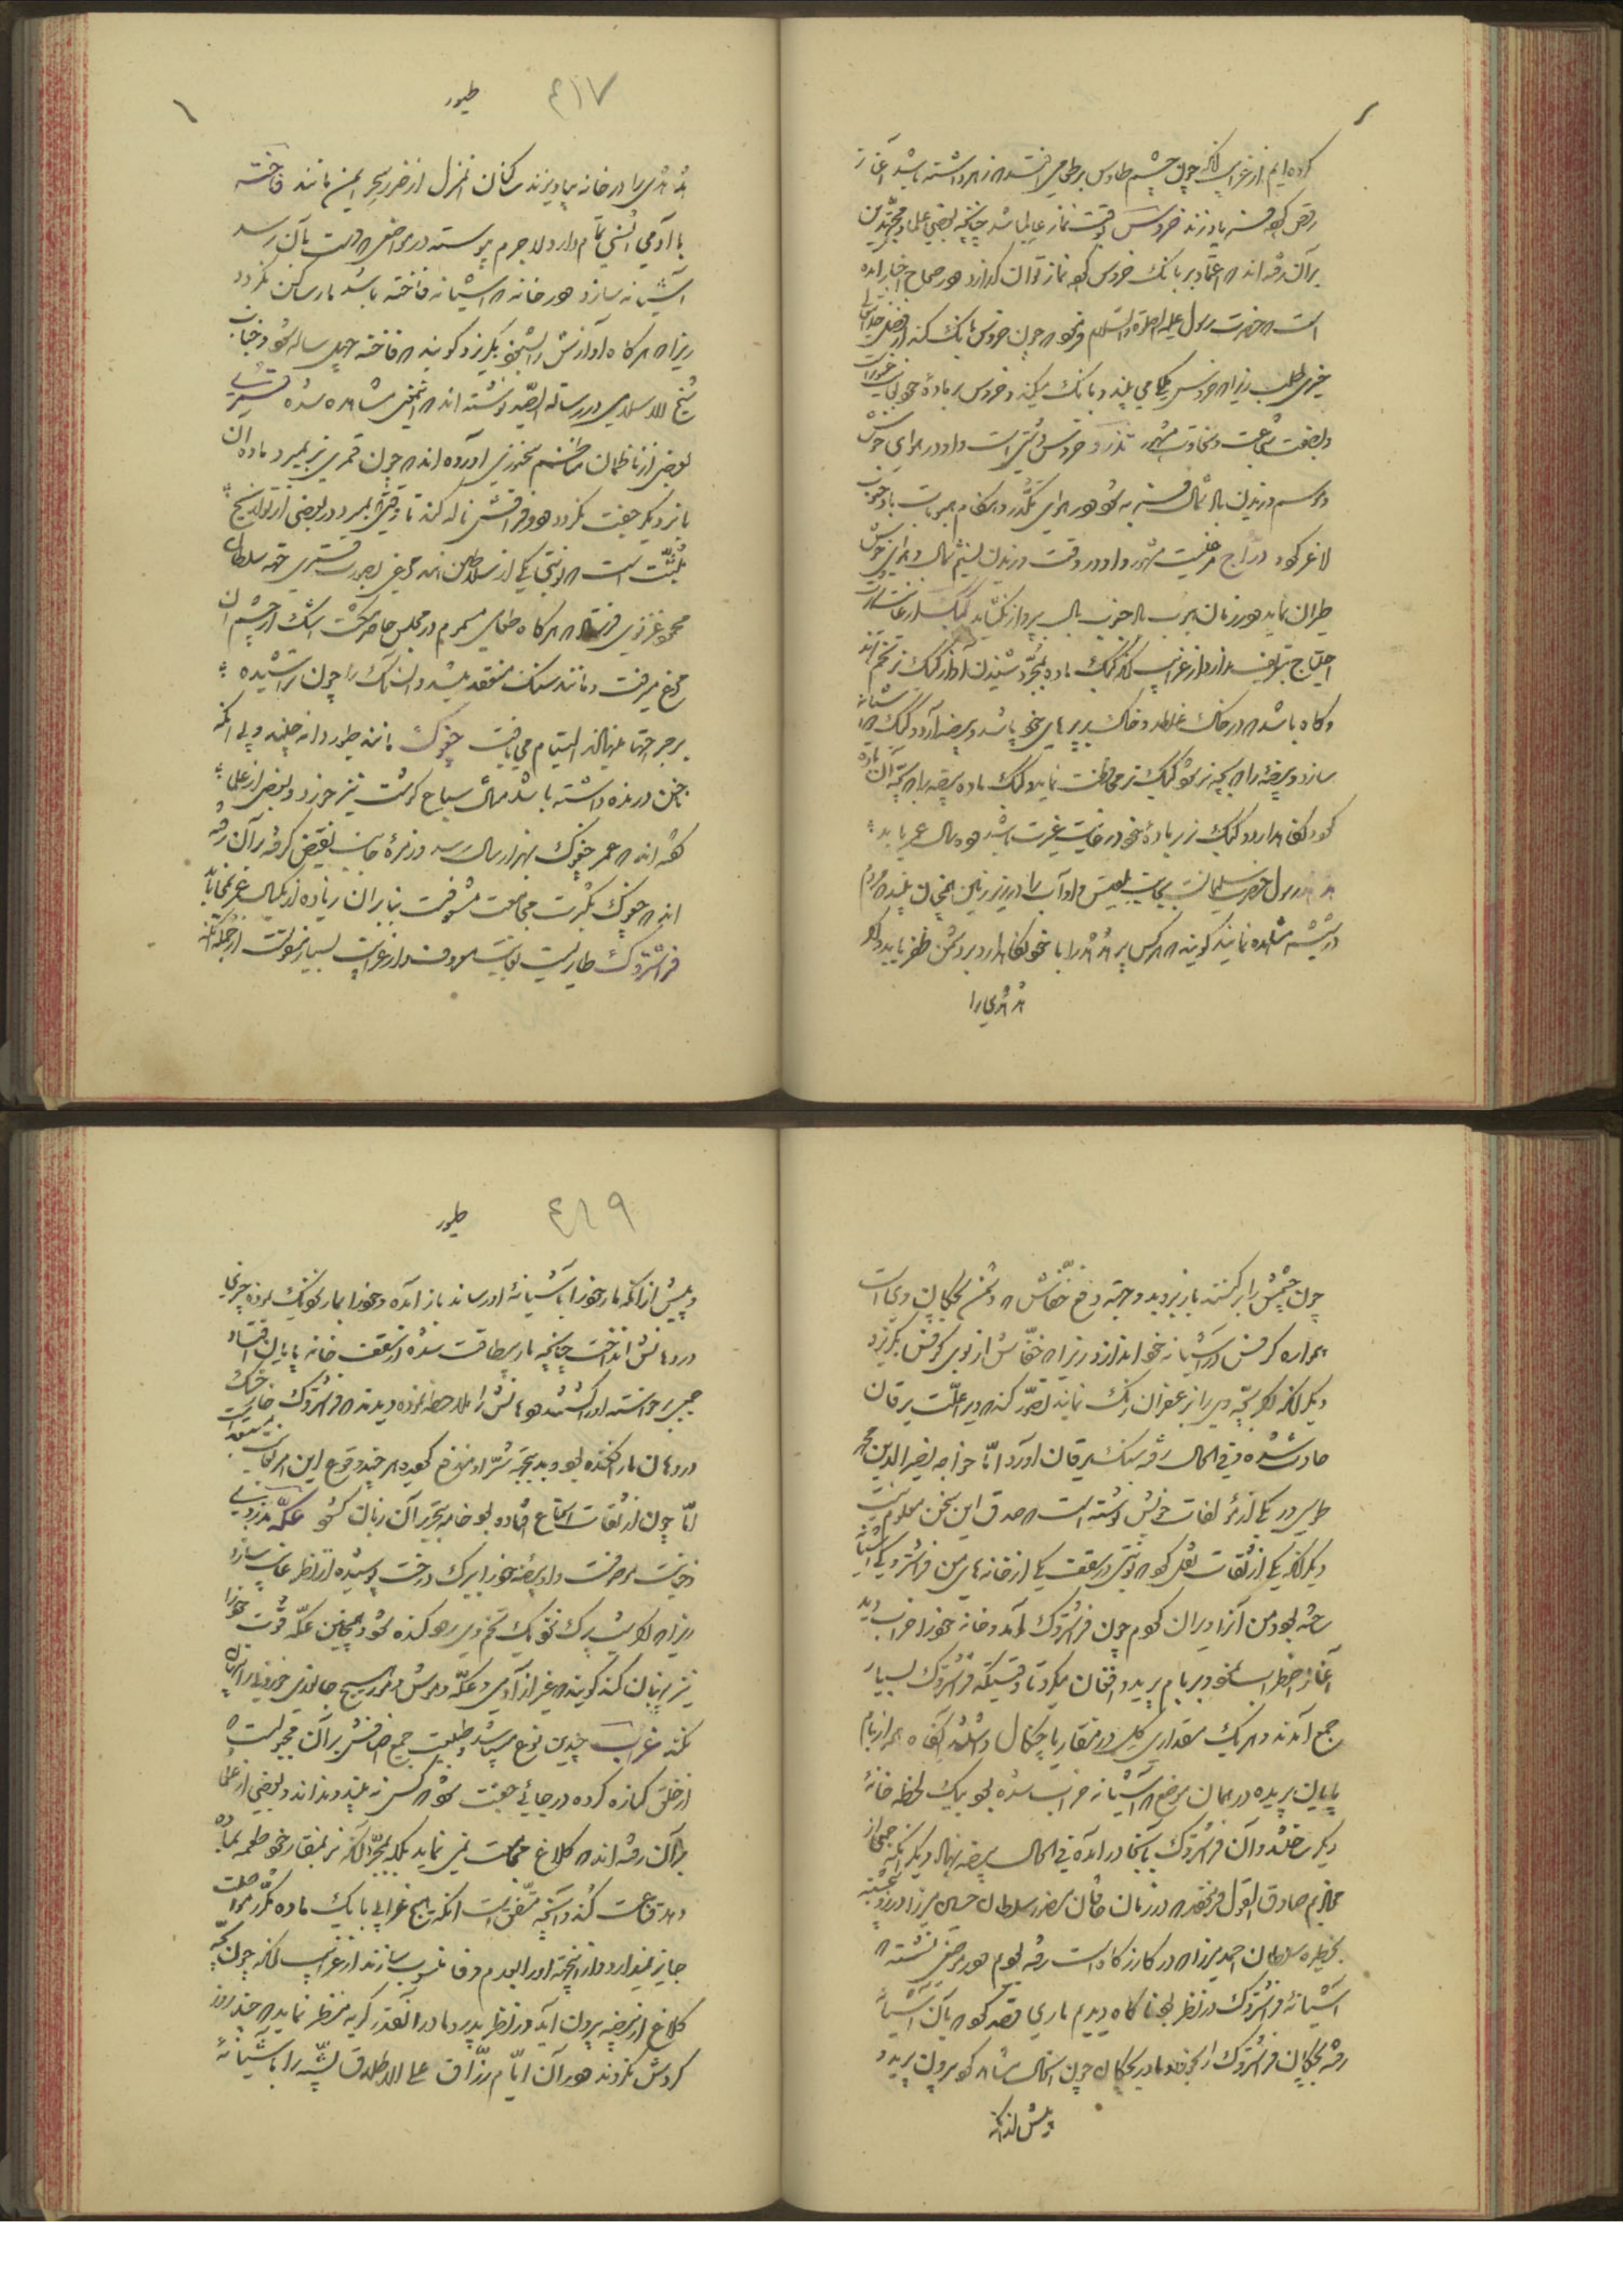 کرده‌ایم از غرایب آنکه چون چشم طاوس بر طعامی افتد که زهر داشته باشد آغاز
رقص کند و فریاد زند خروس وقت نماز عالم باشد چنانچه بعضی علما و مجتهدین
برآن رفته‌اند که اعتماد بر بانک خروس کرده نماز توان گذارد و در صحاح اخبار آمده
است که حضرت رسول علیه الصلوة والسلم فرمود که چون خروس بانک کند از فضل خدای تعالی
خیری طلب زیرا که خروس ملکی می‌بیند و بانک میکند و خروس بر مادهٔ خود
وبصفت شجاعت و سخاوت مشهور تذرو خروس دشتی است و او در هوای خوش
لاغر گردد دراج مرغیست مشهور و او در وقت وزیدن نسیم شمال و هوای خوش
طیران نماید و در زمان هبوب باد جنوب بال پرواز نکشاید کبک از غایت شهرت
احتیاج بتعریف ندارد از غرایب آنکه کبک ماده بمجرد شنیدن آواز کبک نر تخم کند
و گاه باشد که در خاک غلطد و خاک بر پرهای خود پاشد و بیضه آرد و کبک
سازد و بیضهٔ را که بچه نر بود کبک نر محافظت نماید و کبک ماده بیضه را که بچه آن ماده
هدهد رسول حضرت سلیمانست بجانب بلقیس و او آب را در زیر زمین همچنان بیند که مردم
در شیشه مشاهده نمایند گویند که هرکس پر هدهد را با خود نگاه دارد بر دشمن ظفر یابد و اگر
هدهدی را
طیور
٤١٧
هدهدی را در خانه بیاویزند ساکنان آن منزل از ضرر سحر ایمن مانند فاخته
با آدمی انسی تمام دارد لاجرم پیوسته در مواضعی که دست بآن رسد
آشیانه سازد و در خانه که آشیانه فاخته باشد مار ساکن نگردد
زیرا که هرگاه آوازش را بشنود بگریزد و گویند که فاخته چهل ساله شود و جناب
شیخ الاسلامی در رساله الصید نوشته‌اند که اینمعنی مشاهده شده قمری
بعضی از ناظمان مناظم سخنوری آورده‌اند که چون قمری نر بمیرد ماده آن
با نر دیگر جفت نگردد و در فراقش ناله کند تا وقتی که بمیرد و در بعضی از تواریخ
مثبت است که نوبتی یکی از سلاطین هند مرغی بصورت قمری جهة سلطان
محمود غزنوی فرستاد که هرگاه طعامی مسموم در مجلس حاضر گشت اشک از چشم آن
مرغ میرفت و مانند سنک منعقد میشد و آن سنک را چون تراشیده
بر جراحتها می‌نهادند التیام می‌یافت چغوک مانند طیور دانه چیند و بی آنکه
ناخن درنده داشته باشد مثال سباع گوشت نیز خورد و بعضی از علما
گفته‌اند که عمر چغوک بهزار سال رسد و زمرهٔ جانب نقیض گرفته برآن رفته
اند که چغوک بکثرت مجامعت مشعوفست بنابران زیاده از یکسال عمر نمی‌یابد
فراشتروک طایریست بغایت معروف و از غرایب بسیار منقولست از جمله آنکه
چون چشمش را برکنند باز بروید و جهة دفع خفاش که دشمن بچکان وی است
همواره کرفس در آشیانه خود اندازد زیرا که خفاش از بوی کرفس بگریزد
دیگر آنکه اگر بچهٔ ویرا بزعفران رنک نمایند تصور کند که ویرا علت یرقان
حادث شده فی الحال رفته سنک یرقان آورد اما خواجه نصیرالدین محمد
طوسی در یکی از مؤلفات خویش نوشته است که صدق این سخن معلوم نیست
دیگر آنکه یکی از ثقات نقل کرد که نوبتی در سقف یکی از خانه‌های من فراشتروکی آشیانه
ساخته بود و من آنرا ویران کردم چون فراشتروک آمد و خانه خود را خراب دید
آغاز اضطراب نمود و بر بام پرید و افغان میکرد تا وقتیکه فراشتروک بسیار
جمع آمدند و هریک مقداری گل در منقار یا چنکال داشتند آنگاه همه از بام
بپایان پریده در همان موضع که آشیانه خراب شده بود بیک لحظه خانهٔ
دیگر ساختند و آن فراشتروک بآنجا درآمده فی الحال بیضه نهاد دیگر آنکه جمعی از
صادق القول گفتند که در زمان خاقان منصور سلطان حسین میرزا در روز پنجشنبه
بحظیره سلطان احمد میرزا که در گازرگاه است رفته بودیم و در موضعی نشسته که
آشیانهٔ فراشتروک در نظر بود ناگاه دیدیم ماری قصد کرد که بآن آشیانه
رفته بچکان فراشتروک را بخورد و مادر بچکان چون آنحال مشاهده کرد بیرون پرید و
پیش از آنکه
طیور
٤١٩
و پیش از آنکه مار خود را بآشیانهٔ او رساند باز آمده و خود را بمار نزدیک نموده چیزی
در دهانش انداخت چنانچه مار بیطاقت شده از سقف خانه بپایان افتاد
جمعی برخواسته او را کشتند و دهانش را ملاحظه نموده دیدند که فراشتروک خار خسک
در دهان مار افکنده بود و بدینجهة شر او مندفع گردید هرچند وقوع این امر بغایت مستبعد است
اما چون از ثقات استماع افتاده بود خامه بتحریر آن زبان گشود عکه بدزدی
و خیانت موصوفست و او بیضهٔ خود را ببرک درخت پوشیده از نظر غایب سازد
زیرا که اگر شب‌پرک نزدیک تخم وی رود گنده شود و همچنین عکه قوت خود را
نیز پنهان کند گویند که غیر از آدمی و عکه و موش و مور هیچ جانوری ذخیره پنهان
نکند غراب چندین نوع میباشد و طبیعت جمیع اصنافش برآن مجبولست که
از خلق کناره کرده در جائی جفت شود که کس نه بیند و نداند و بعضی از علما
برآن رفته‌اند که کلاغ مجامعت نمی‌نماید بلکه بمجرد آنکه نر بمنقار خود طعمه بماده
دهد قناعت کند و آنچه متفق است آنکه هیچ غرابی با یک ماده مکرر مواصلت
جایز نمیدارد و از اینجهة او را بعدم وفا منسوب سازند از غرایب آنکه چون بچه
کلاغ از بیضه بیرون آید در نظر پدر و مادر آنقدر کریه منظر نماید که چند روز
گردش نگردند و در آن ایام رزاق علی الاطلاق پشه را بآشیانهٔ